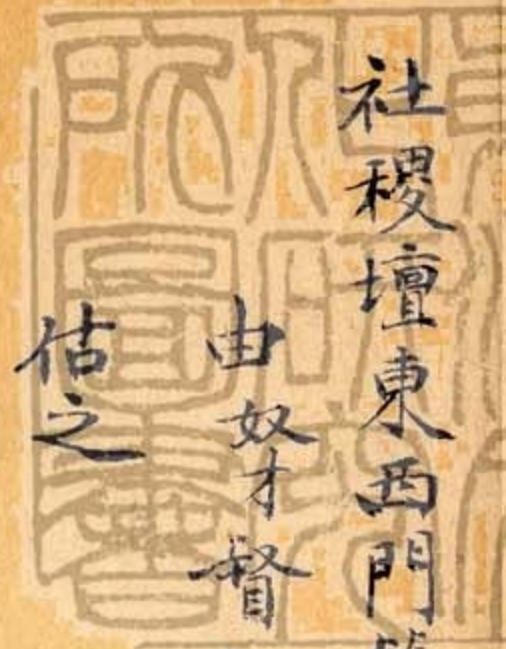 社稷壇東西門
由奴才督
估之